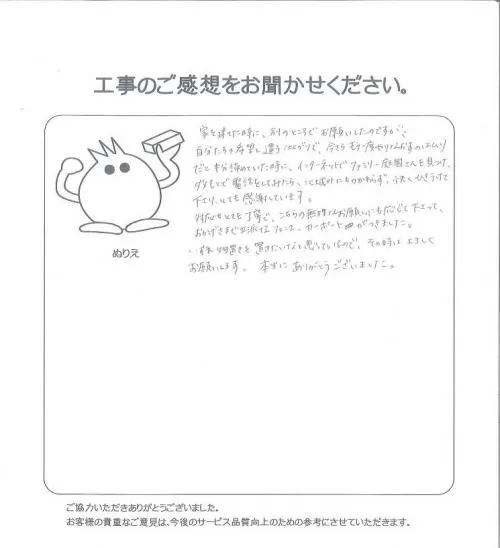 工事のご感想をお聞かせください。
家を建てた時に、別のところでお願いしたのですが、
自分たちの希望と違う仕上がりで、今さらもう一度やりなおすのはムリ
だと半分諦めていた時に、インターネットでファミリー庭園さんを見つけ、
ダメもとで電話をしてみたら、地域外にもかかわらず、快くひきうけて
下さり、とても感謝しています。
対応もとても丁寧で、こちらの無理なお願いにも応じて下さって、
おかげさまで立派なフェンス、カーポートができました。
将来 物置きを置きたいなと思っているので、その時は よろしく
お願いします。 本当に ありがとうございました。
ぬりえ
ご協力いただきありがとうございました。
お客様の貴重なご意見は、今後のサービス品質向上のための参考にさせていただきます。